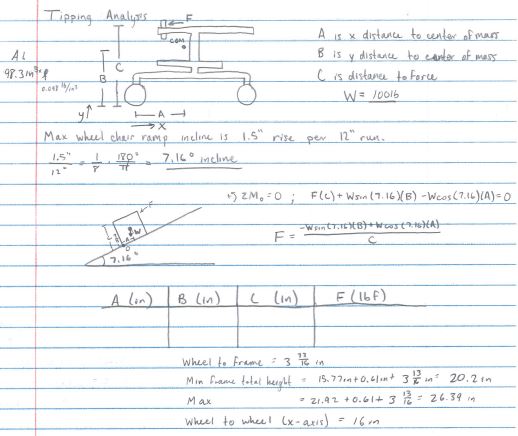 Tipping Analysis
F
COM
A is x distance to center of mass
B is y distance to center of mass
C is distance to Force
W = 100 lb
AL
98.3 in³
0.098 lb/in³
B
C
A
y
x
Max wheel chair ramp incline is 1.5" rise per 12" run.
1.5" / 12" = 1/8 · 180° / π = 7.16° incline
ΣM₀ = 0 ; F(C) + W sin(7.16)(B) - W cos(7.16)(A) = 0
F = -W sin(7.16)(B) + W cos(7.16)(A) / C
F
W
7.16°
A (in) B (in) C (in) F (lbF)
Wheel to frame = 3 13/16 in
Min frame total height = 15.77in + 0.61in + 3 13/16 in = 20.2 in
Max = 21.92 + 0.61 + 3 13/16 = 26.39 in
Wheel to wheel (x-axis) = 16 in